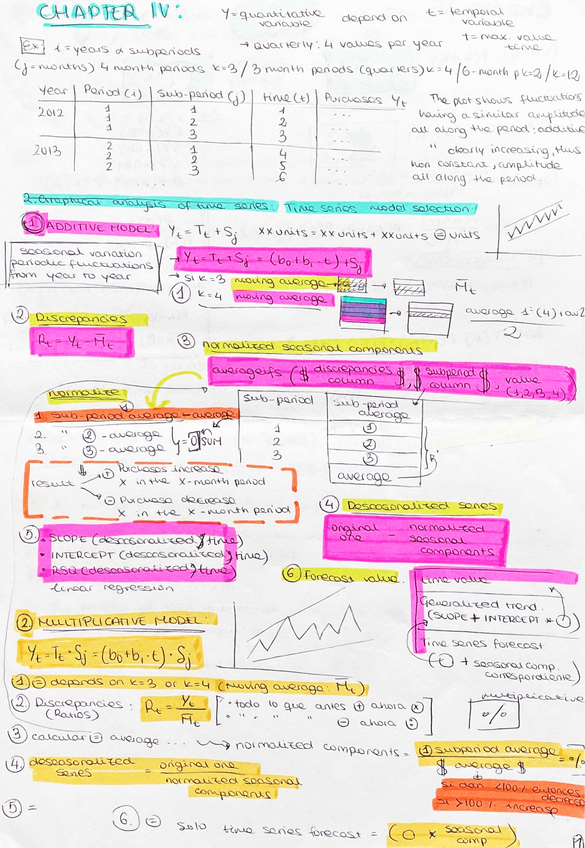 CHAPTER IV:
Y=quantitative variable depend on t=temporal variable
Ex t=years & subperiods → quarterly: 4 values per year T=max. value time
(j=months) 4 month periods k=3 / 3 month periods (quarters) k=4 / 6-month p k=2 / k=12
Year Period (i) Sub-period (j) time (t) Purchases Yt
2012 1 1 1 ...
1 2 2 ...
1 3 3 ...
2013 2 1 4 ...
2 2 5
2 3 6
The plot shows fluctuations
having a similar amplitude
all along the period: additive
" clearly increasing, thus
non constant, amplitude
all along the period.
2. Graphical analysis of time series: Time series model selection:
① ADDITIVE MODEL Yt = Tt + Sj xx units = xx units + xx units = units
seasonal variation
periodic fluctuations
from year to year
→ Yt = Tt + Sj = (b0+b1·t) + Sj
→ si k=3 moving average → M̄t
① k=4 moving average → average 1ª (4) + av 2
2
② Discrepancies
R̄t = Yt - M̄t
③ normalized seasonal components
averageifs ($ discrepancies column $, $ subperiod column $, value (1,2,3,4))
normalize
1. sub-period average - average
2. " ② - average
3. " ③ - average
= 0 SUM
Sub-period Sub-period average
1 ①
2 ②
3 ③
average
result → ⊕ Purchases increase
X in the X-month period
→ ⊖ Purchase decrease
X in the X-month period
④ Desseasonalized series
original one - normalized seasonal components
⑤. • SLOPE (deseasonalized, time)
• INTERCEPT (deseasonalized, time)
• RSQ (deseasonalized, time)
linear regression
⑥ Forecast value.
time value
Generalized trend.
(SLOPE + INTERCEPT * O)
Time series forecast
(O + seasonal comp.
correspondiente)
② MULTIPLICATIVE MODEL:
Yt = Tt · Sj = (b0+b1·t) · Sj
① = depends on k=3 or k=4 (moving average: M̄t)
② Discrepancies: (Ratios) Rt = Yt / M̄t
• todo lo que antes ⊕ ahora ⊗
• " " " " ⊖ ahora
multiplicative
%
③ calcular = average ... → normalized components = ① subperiod average / $ average $ = %
④ deseasonalized series = original one / normalized seasonal components
si dan <100% entonces decrease
si >100% increase
⑤ =
⑥. = solo time series forecast = (O x seasonal comp)